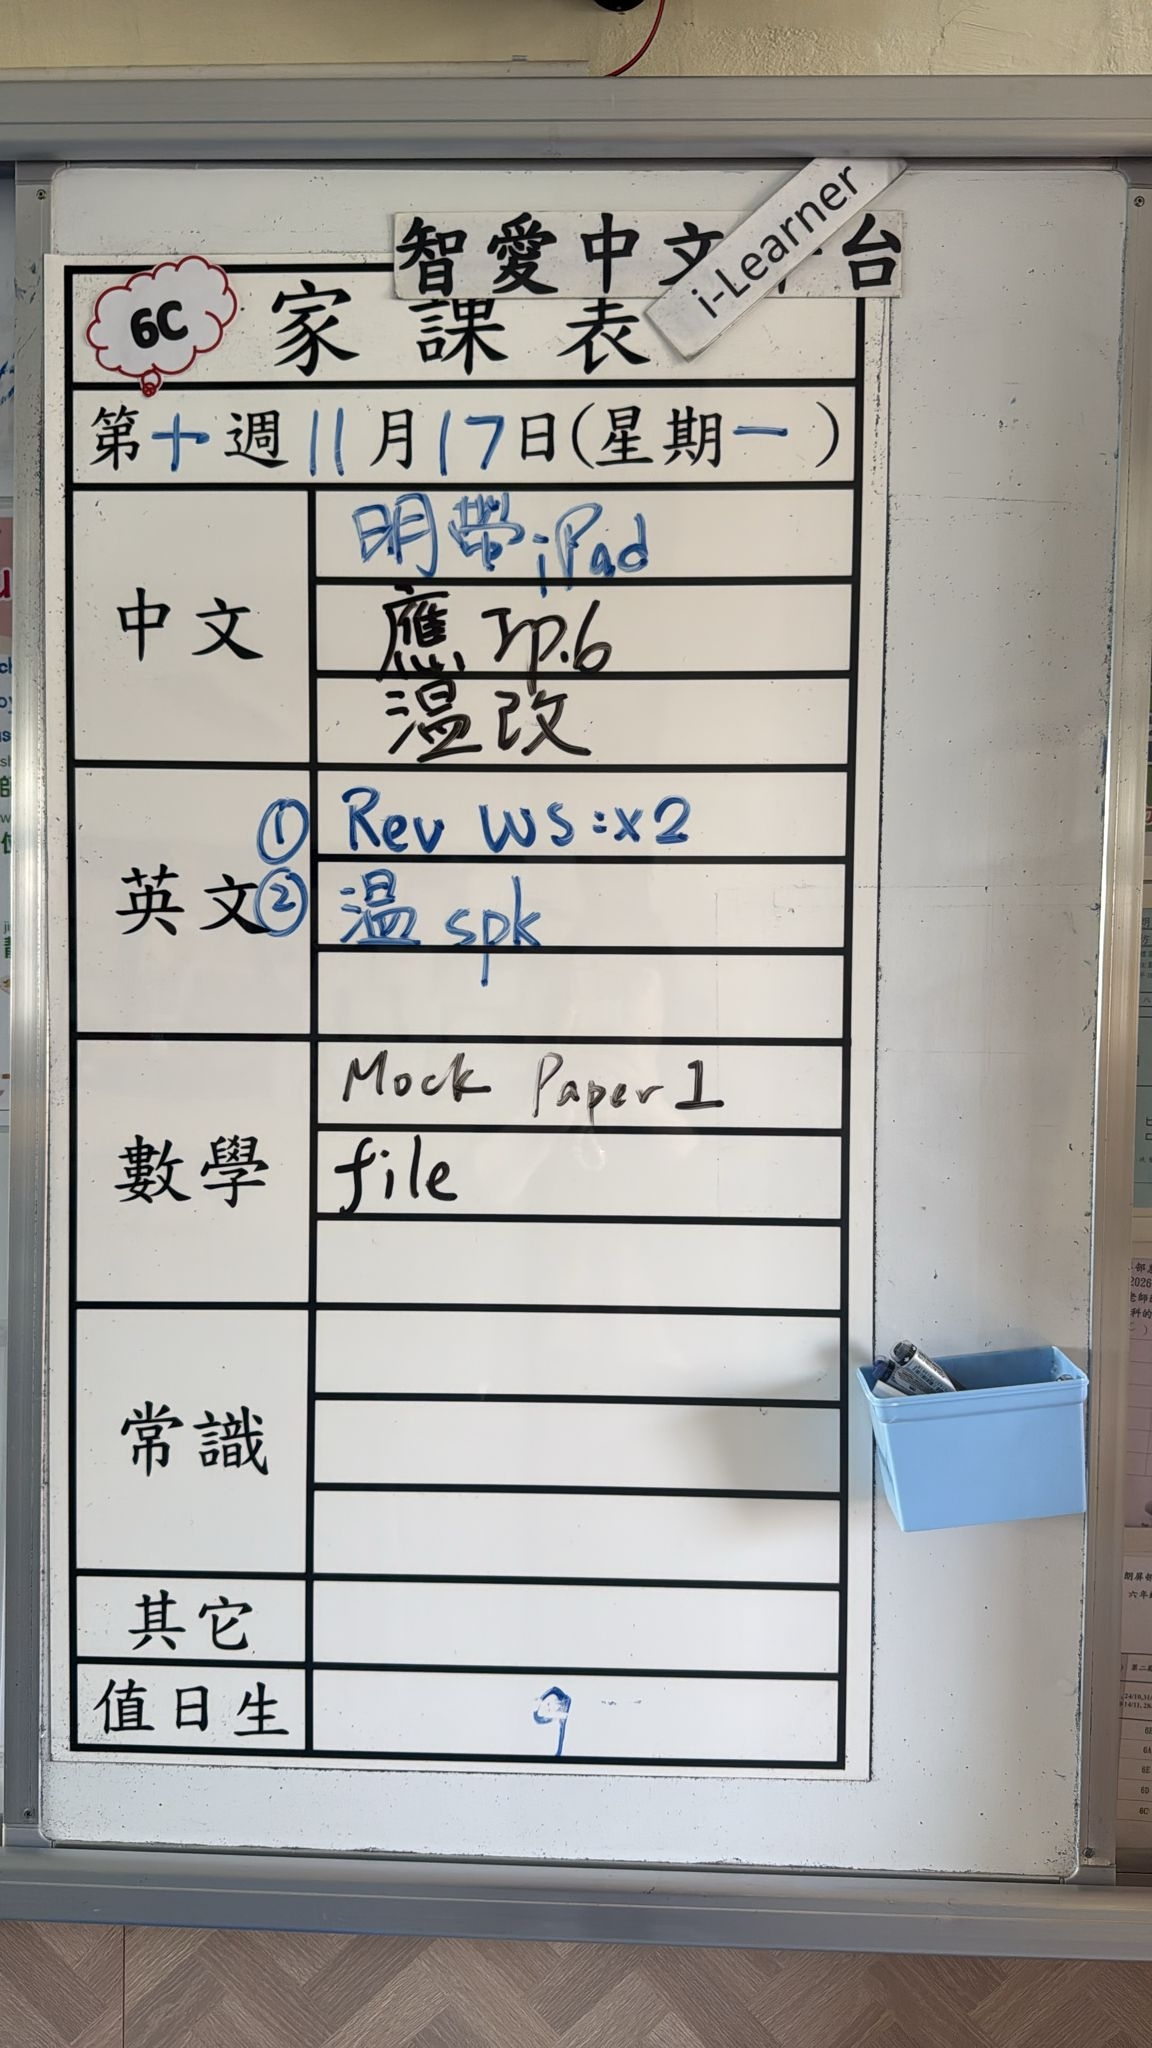 智愛中文 台
i-Learner
6C
家課表
第十週11月17日(星期一)
中文
明帶iPad
應 工p.6
溫改
英文
① Rev WS:x2
② 溫 spk
數學
Mock Paper 1
file
常識
其它
值日生
9